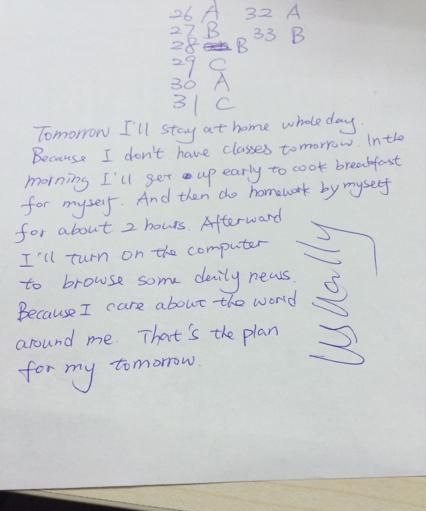 26 A 32 A
27 B 33 B
28 B
29 C
30 A
31 C
Tomorrow I'll stay at home whole day.
Because I don't have classes tomorrow. In the
morning I'll get up early to cook breakfast
for myself. And then do homework by myself
for about 2 hours. Afterward
I'll turn on the computer
to browse some daily news.
Because I care about the world
around me. That's the plan
for my tomorrow.
usually